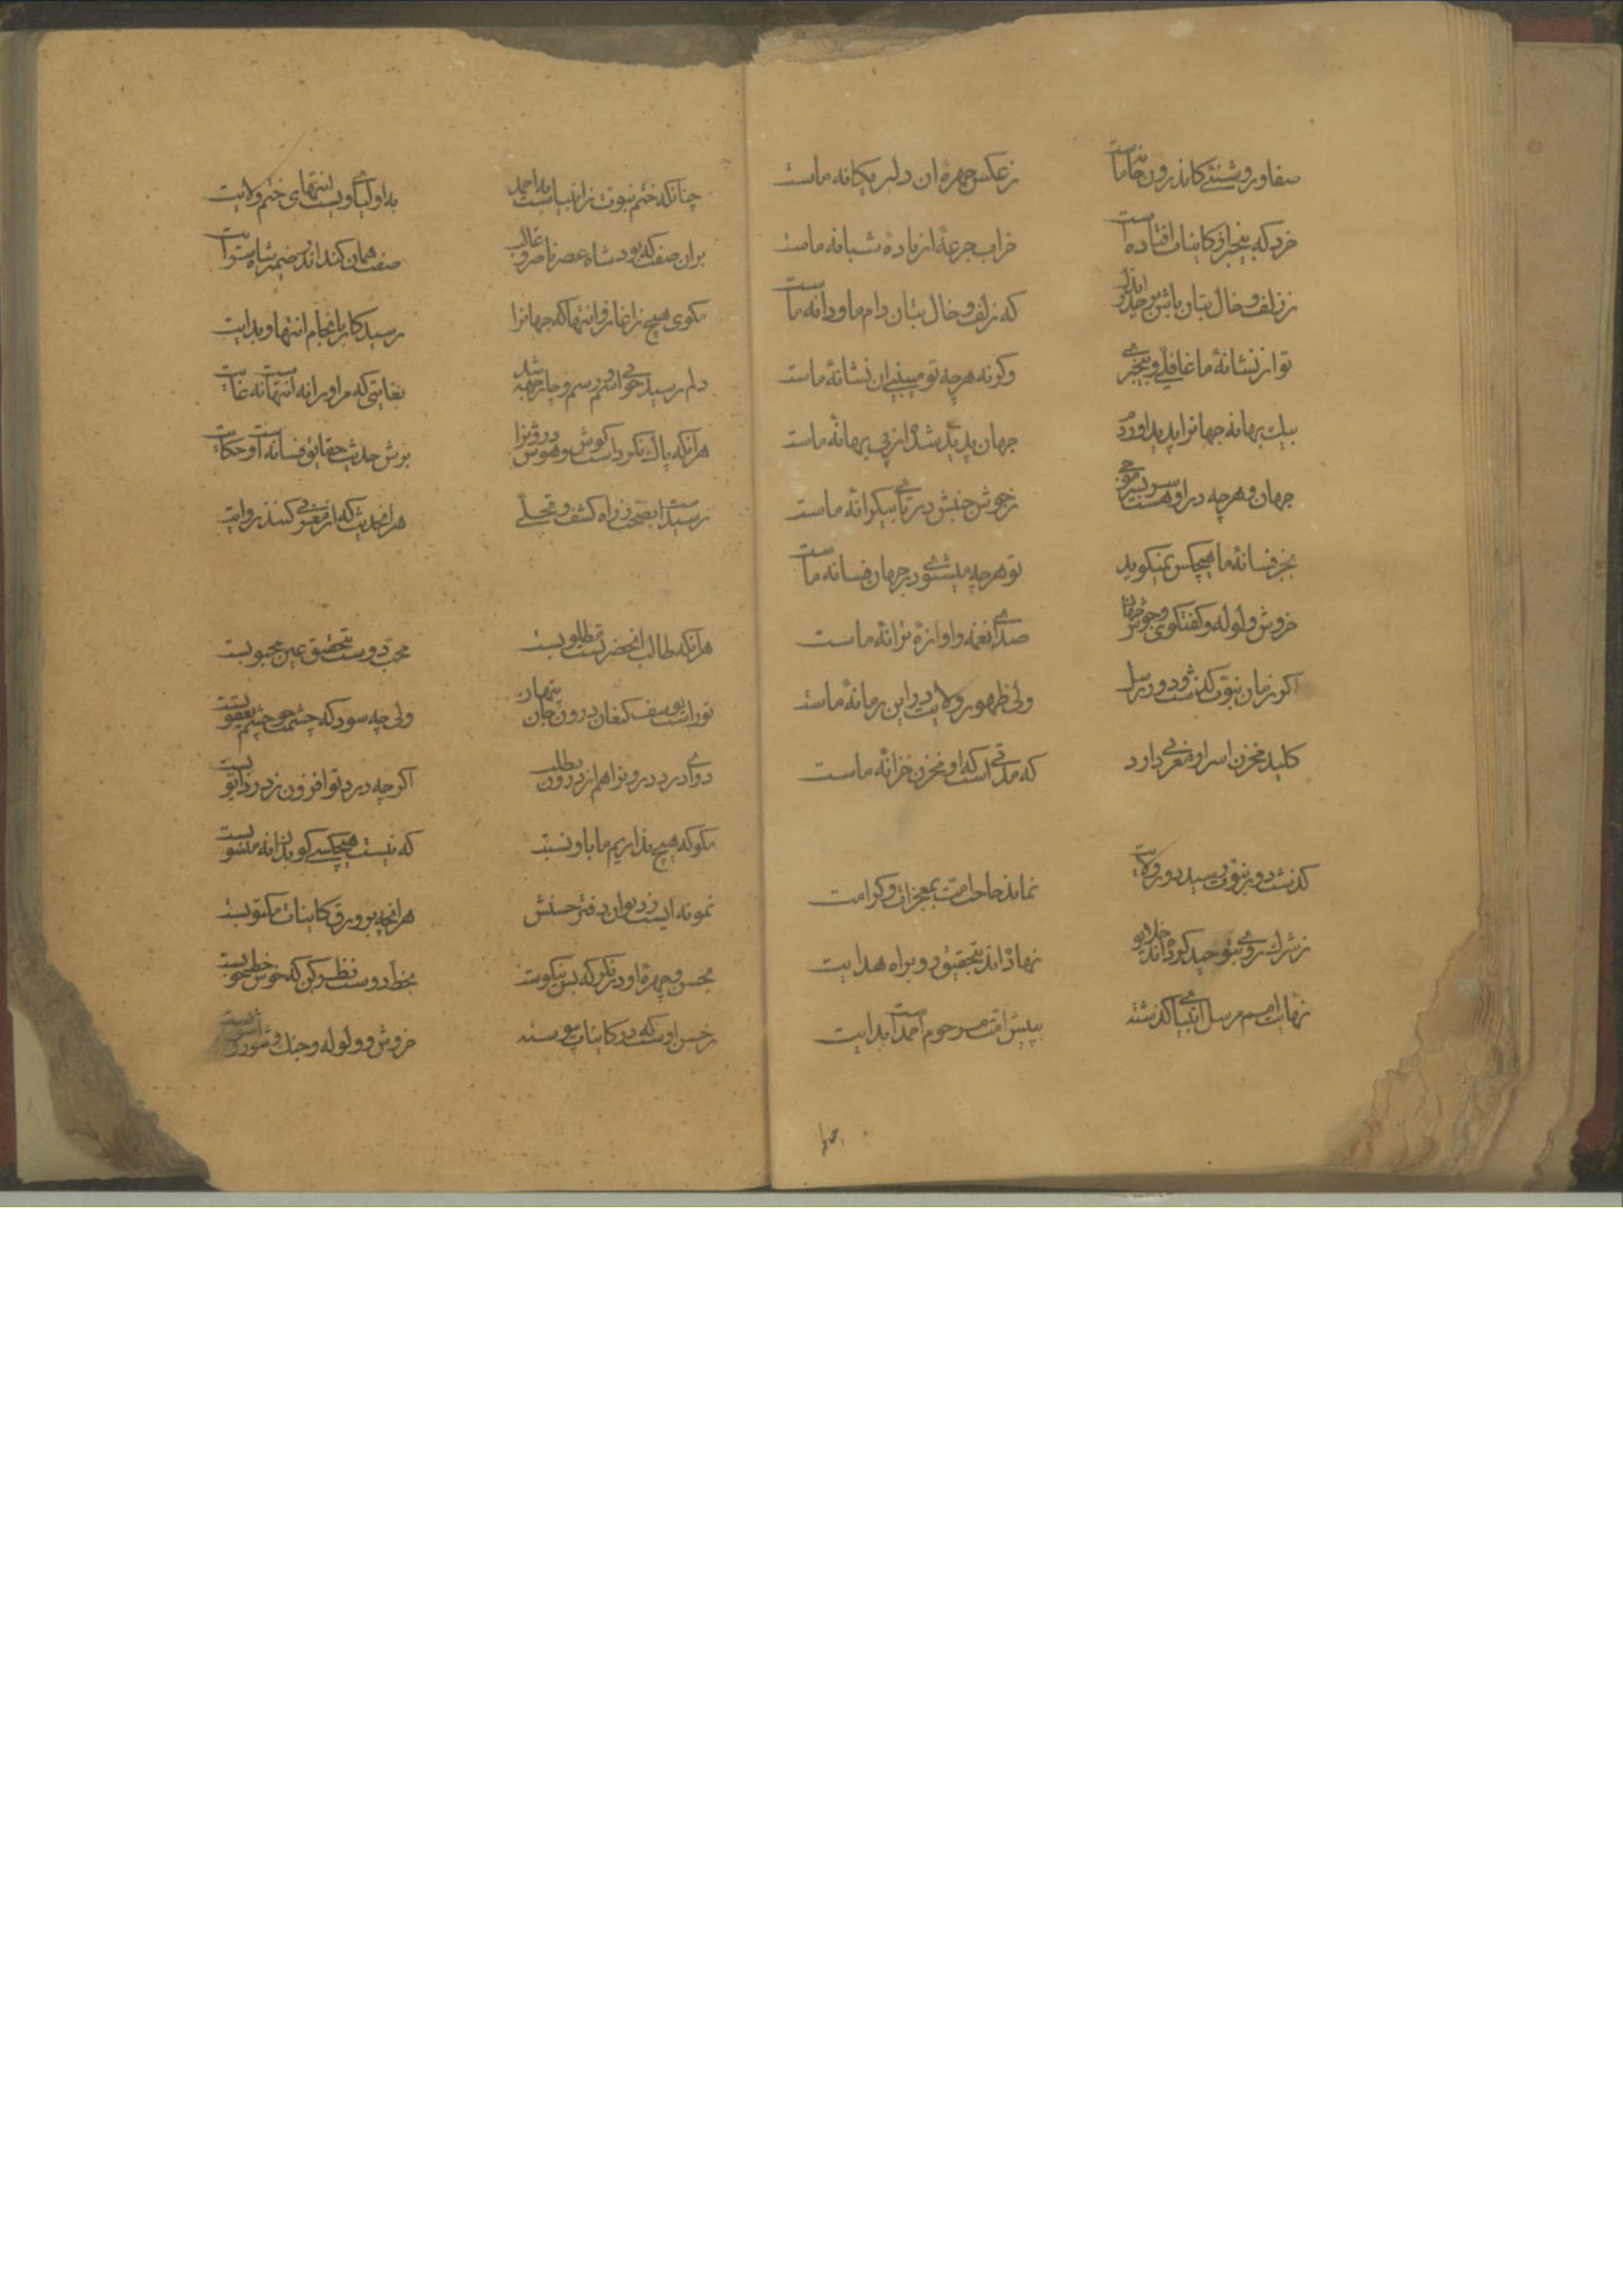 صفا و روشنئی کاندرون خانه ماست زعکس چهرهٔ ان دلبر یکانه ماست
خرد که بیخبر از کاینات افتاده است خراب جرعهٔ از بادهٔ شبانه ماست
ز زلف و خال بتان باش بر حذر که زلف و خال بتان دام ما و دانه ماست
تو از نشانهٔ ما غافلی و بیخبری وکرنه هرچه تو میبینی ان نشانهٔ ماست
بیک بهانه جهانرا پدید اورد جهان پدید شد از پی بهانهٔ ماست
جهان و هرچه در او هست سربسر موجی زجوش جنبش دریای بیکرانهٔ ماست
بجز فسانهٔ ما هیچکس نمیکوید تو هرچه میشنوی در جهان فسانه ماست
خروش و لوله و کفتکوی و جوش صدای نغمه و اوازهٔ ترانهٔ ماست
اکر زمان نبوت کذشت و دور رسل ولی ظهور ولایت در این زمانهٔ ماست
کلید مخزن اسرار مغربی دارد که مدتی است که او مخزن خزانهٔ ماست
کذشت دور نبوت رسید دور ولایت نماند حاجت امت بمعجزات و کرامت
ز شرک روی بتوحید کرده اند خلایق نهاده اند بتحقیق رو براه هدایت
نهایت امم مرسل انبیای کذشته به پیش امت مرحوم احمد است بدایت
چنانکه ختم نبوت ز انبیا است به احمد به اولیای ویست انتهای ختم ولایت
بران صفت که بود شاه عصر ناصر و غالب صفت همان کند اندر ضمیر شاه سرایت
مکوی هیچ ز اغاز و انتها که جهانرا رسید کار بانجام انتها و بدایت
دلم رسید چو از اسم و رسم و جا همه شد بغایتی که مر اورا نه انتهاست نه غایت
هرانکه پاک نکرد است کوش و هوش درونرا برش حدیث حقایق فسانه است و حکایت
رسید است بصحت ز راه کشف و تجلی هر انحدیث که از مغربی کنند روایت
هرانکه طالب انحضرتست مطلوبست محب دوست بتحقیق عین محبوبست
تورا است یوسف کنعان درون جان پنهان ولی چه سود که چشمت چو چشم یعقوبست
دوای درد درونرا هم از درون بطلب اکر چه درد تو افزون ز درد ایوبست
مکو که هیچ نداریم ما باو نسبت که نیست هیچکسی کو بدانه منسوبست
نمونه ایست ز دیوان دفتر حسنش هر انچه بر ورق کاینات مکتوبست
بحسن و چهرهٔ او در نکر که بس نیکوست بخط دوست نظر کن که خوش خطی خوبست
زحسن اوست که در کاینات پیوسته خروش و ولوله و جنک و شور و اشوبست